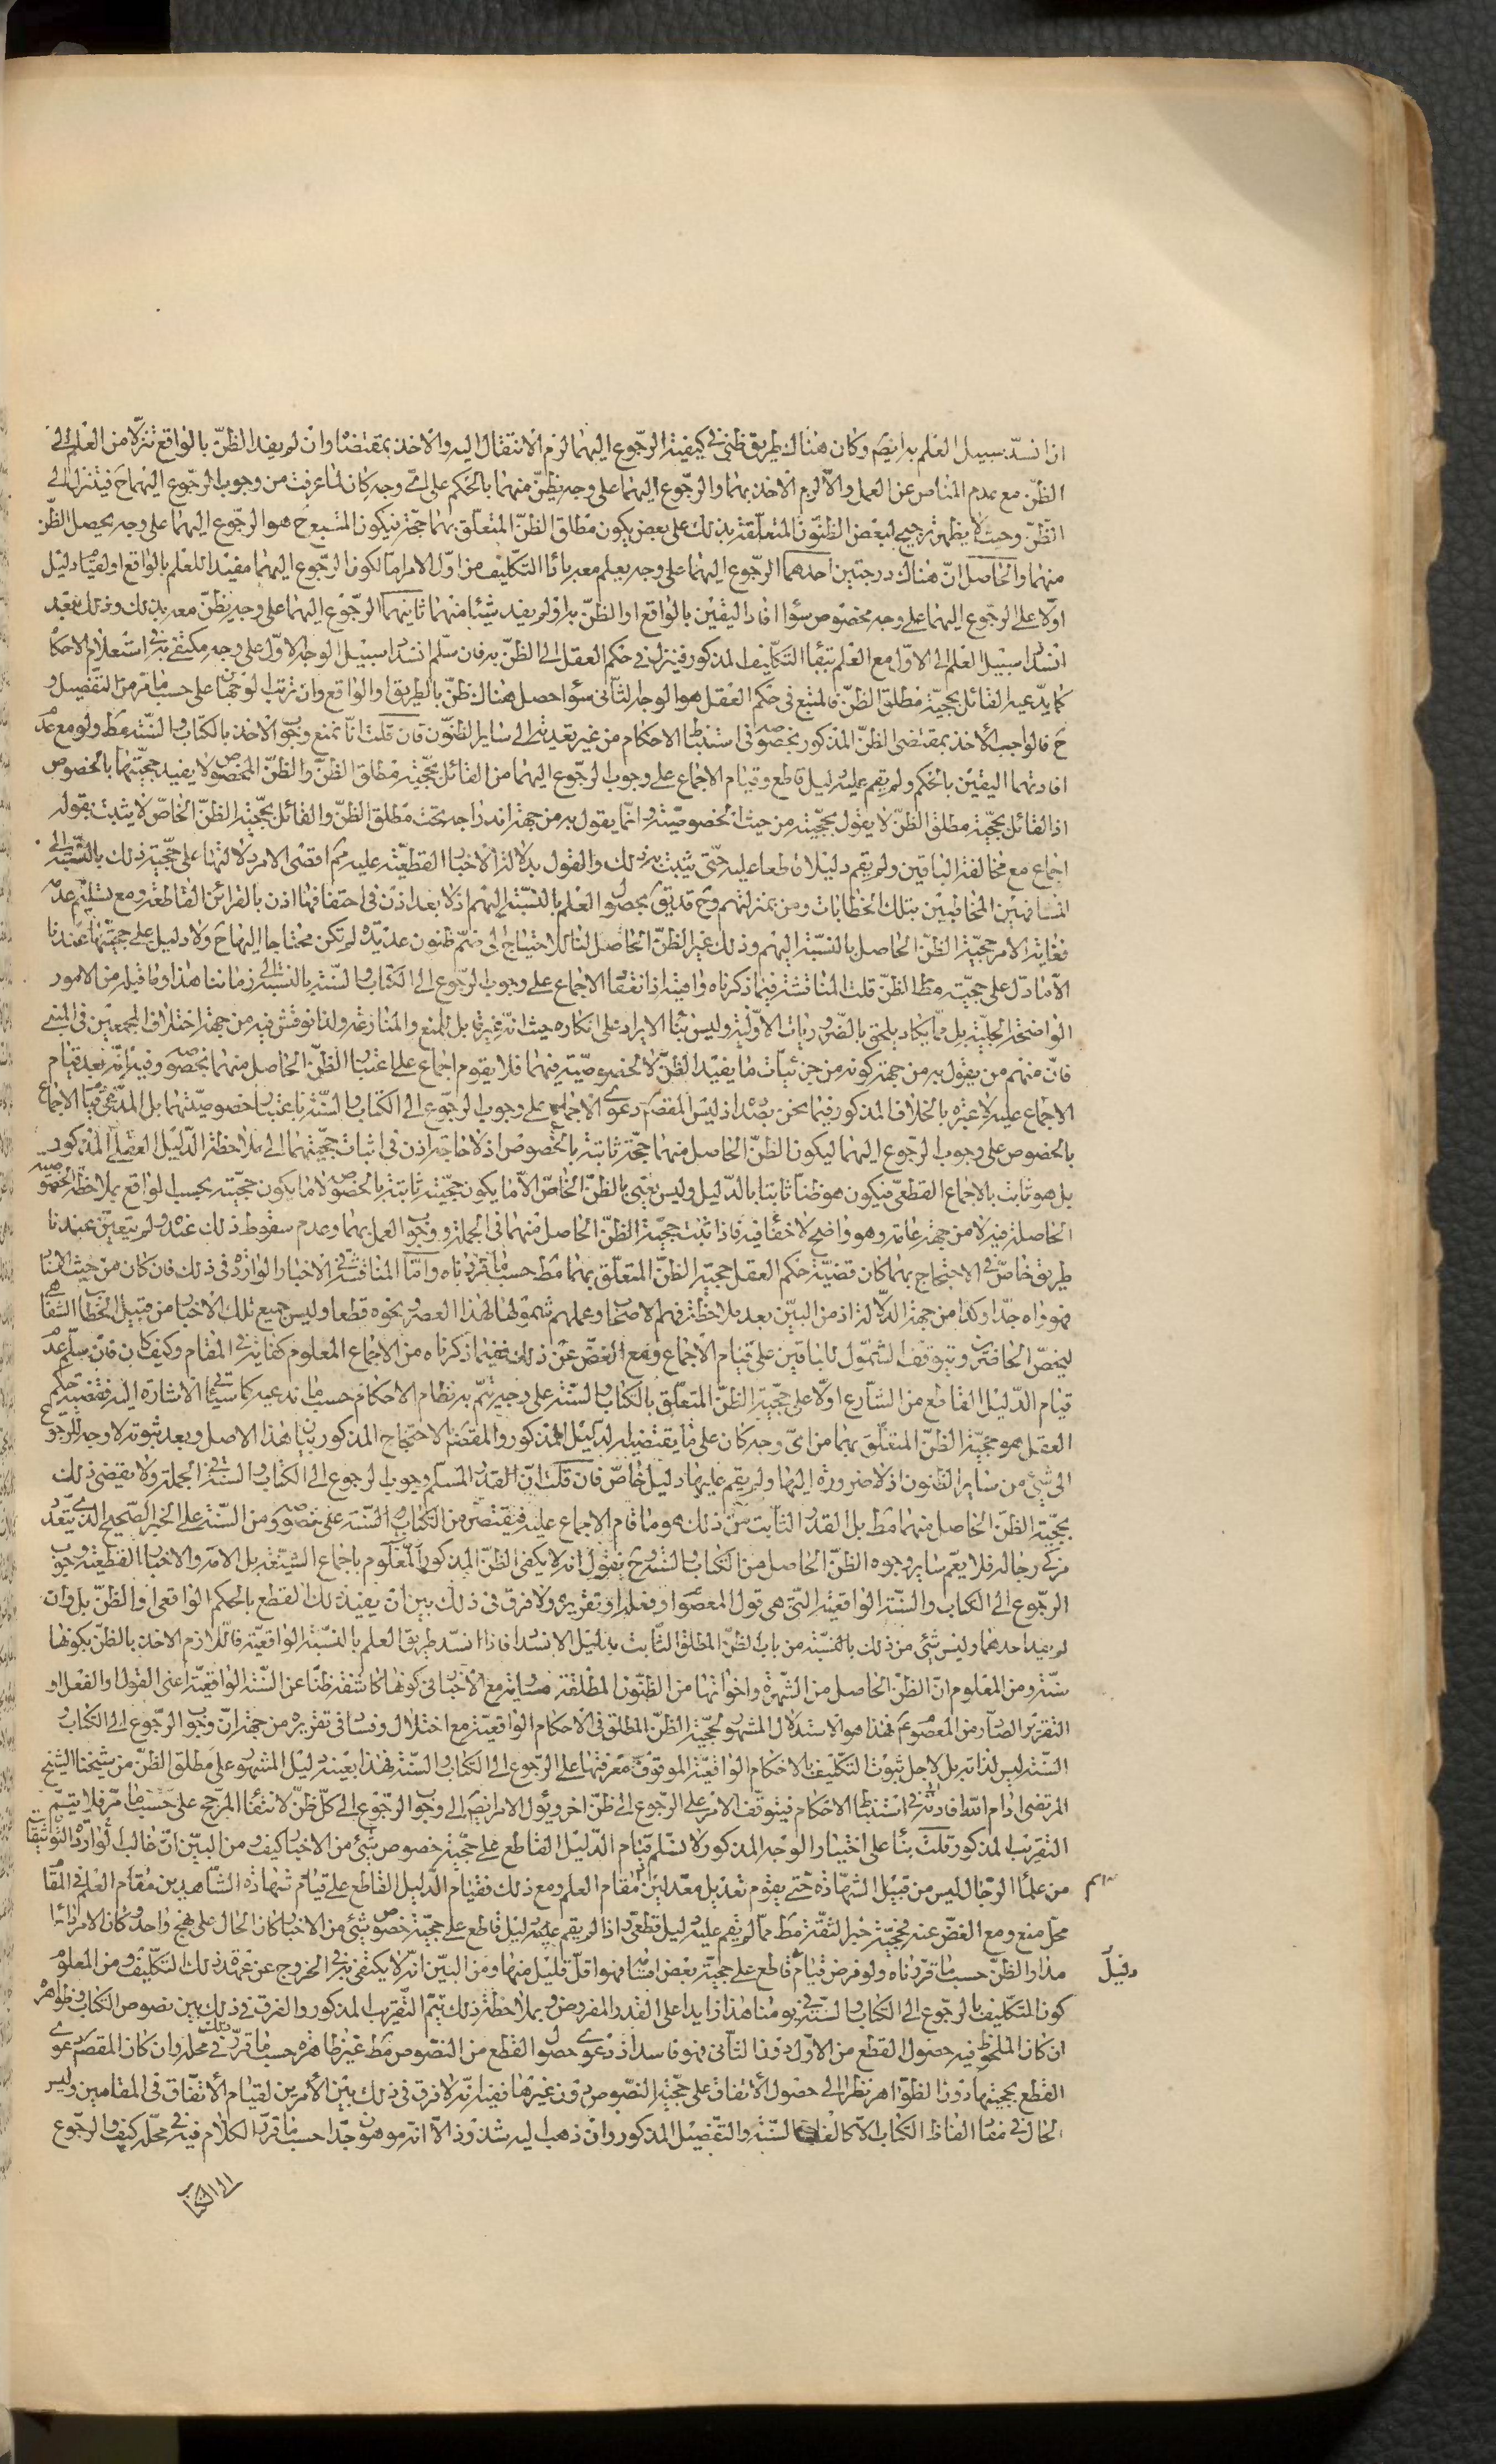 اذا انسدّ سبيل العلم به ايضم وكان هناك طريق ظنى فى كيفية الرجوع اليهما لزم الانتقال اليه والاخذ بمقتضاه وان لم يفد الظنّ بالواقع تنزّلا من العلم الى
الظنّ مع عدم المناص عن العمل والّا لزم الاخذ بهما والرجوع اليهما على وجه يظنّ منهما بالحكم على اىّ وجه كان لما عرفت من وجوب الرجوع اليهما ح فيتنزل الى
الظنّ وحيث لا يظهر ترجيح لبعض الظنون المتعلقة بذلك على بعض يكون مطلق الظنّ المتعلق بهما حجّة فيكون المتبع ح هو الرجوع اليهما على وجه يحصل الظنّ
منهما والحاصل انّ هناك درجتين احدهما الرجوع اليهما على وجه يعلم معه باداء التكليف من اوّل الامر امّا لكون الرجوع اليهما مفيدا للعلم بالواقع او لقيام دليل
اولا على الرجوع اليهما على وجه مخصوص سواء افاد اليقين بالواقع او الظنّ به او لم يفد شيئا منهما ثانيهما الرجوع اليهما على وجه يظنّ معه بذلك وذلك بعد
انسداد سبيل العلم الى الاوّل مع العلم ببقاء التكليف المذكور فينزل فى حكم العقل الى الظنّ به فان سلّم انسداد سبيل الوجه الاوّل على وجه مكتفى به فى استعلام الاحكام
كما يدّعيه القائل بحجيّة مطلق الظنّ فالمتبع فى حكم العقل هو الوجه الثانى سواء حصل هناك ظنّ بالطريق او الواقع وان ترتب الوجهان على حسب ما مرّ من التفصيل و
ح فالواجب الاخذ بمقتضى الظنّ المذكور بخصوصه فى استنباط الاحكام من غير تعدية الى ساير الظنون فان قلت انا نمنع وجوب الاخذ بالكتاب والسّنة مط ولو مع عدم
افادتهما اليقين بالحكم ولم يقم عليه دليل قاطع وقيام الاجماع على وجوب الرجوع اليهما من القائل بحجيّة مطلق الظنّ والظنّ المخصوص لا يفيد حجيّتها بالخصوص
اذ القائل بحجيّة مطلق الظنّ لا يقول بحجيّته من حيث الخصوصيّة وانّما يقول به من جهة اندراجه تحت مطلق الظنّ والقائل بحجيّة الظنّ الخاصّ لا يثبت بقوله
اجماع مع مخالفة الباقين ولم يقم دليلا قاطعا عليه حتى يثبت به ذلك والقول بدلالة الاخبار القطعيّة عليه مم اقصى الامر دلالتها على حجيّة ذلك بالنسبة الى
المشافهين المخاطبين بتلك الخطابات ومن بمنزلتهم وح قد يق بحصول العلم بالنسبة اليهم اذ لا بعد اذن فى احتفافها اذن بالقرائن القاطعة ومع تسليم عدمه
فغاية الامر حجيّة الظنّ الحاصل بالنسبة اليهم وذلك غير الظنّ الحاصل لنا للاحتياج الى ضمّ ظنون عديدة لم تكن محتاجا اليها ح ولا دليل على حجيّتها عندنا
الّا ما دلّ على حجيّة مطلق الظنّ قلت المناقشة فيما ذكرناه واهية اذ انعقاد الاجماع على وجوب الرجوع الى الكتاب والسّنة بالنسبة الى زماننا هذا وما قبله من الامور
الواضحة الجليّة بل ممّا يكاد يلحق بالضروريات الاوّلية وليس بناء الايراد على انكاره حيث انّه غير قابل للمنع والمنازعة ولذا نوقش فيه من جهة اختلاف المجمعين فى المبنى
فانّ منهم من يقول به من جهة كونه من جزئيات ما يفيد الظنّ لا لخصوصيّة فيهما فلا يقوم اجماع على اعتبار الظنّ الحاصل منهما بخصوصه وفيه انّه بعد قيام
الاجماع عليه لا عبرة بالخلاف المذكور فيما نحن بصدده اذ ليس المقصم دعوى الاجماع على وجوب الرجوع الى الكتاب والسّنة باعتبار خصوصيّتهما بل المدّعى قيام الاجماع
بالخصوص على وجوب الرجوع اليهما ليكون الظنّ الحاصل منهما حجّة ثابتة بالخصوص اذ لا حاجة اذن فى اثبات حجيّتهما الى ملاحظة الدّليل العقلى المذكور
بل هو ثابت بالاجماع القطعىّ فيكون هو ظنّا ثابتا بالدّليل وليس نعنى بالظنّ الخاصّ الّا ما يكون حجيّته ثابتة بالخصوص لا ما يكون حجيّته بحسب الواقع بملاحظة الخصوصيّة
الحاصلة فيه لا من جهة عامّة وهو واضح لا خفاء فيه فاذا ثبت حجيّة الظنّ الحاصل منهما فى الجملة ووجوب العمل بهما وعدم سقوط ذلك عنه ولم يتعيّن عندنا
طريق خاصّ فى الاحتجاج بهما كان قضيّة حكم العقل حجيّة الظنّ المتعلّق بهما مط حسبما قرّرناه وامّا المناقشة فى الاخبار الواردة فى ذلك فان كان من حيث الاسناد
فهو واه جدّا وكذا من جهة الدّلالة اذ من البيّن بعد ملاحظة فهم الاصحاب وعملهم شمولها لهذا العصر ونحوه قطعا وليس جميع تلك الاخبار من قبيل الخطاب الشفاهى
ليختصّ الحاضرين ويتوقف الشمول للباقين على قيام الاجماع ومع الغضّ عن ذلك ففيما ذكرناه من الاجماع المعلوم كفاية فى المقام وكيف كان فان سلّم عدم
قيام الدّليل القاطع من الشّارع اولا على حجيّة الظنّ المتعلق بالكتاب والسّنة على وجه يتمّ به نظام الاحكام حسبما ندعيه كما سيأتى الاشارة اليه فقضيّة حكم
العقل هو حجيّة الظنّ المتعلّق بهما من اىّ وجه كان على ما يقتضيه الدليل المذكور والمقصم بالاحتجاج المذكور بيان هذا الاصل وبعد ثبوته لا وجه للرجوع
الى شىء من ساير الظنون اذ لا ضرورة اليها ولم يقم عليها دليل خاصّ فان قلت انّ القدر المسلّم وجوب الرجوع الى الكتاب والسّنة فى الجملة ولا يقضى ذلك
بحجيّة الظنّ الحاصل منهما مط بل القدر الثابت من ذلك هو ما قام الاجماع عليه فيقتصر من الكتاب والسّنة على نصوصه ومن السّنة على الخبر الصّحيح الذى يتعدد
مزكى رجاله فلا يعمّ ساير وجوه الظنّ الحاصل من الكتاب والسّنة وح نقول انه لا يكفى الظنّ المذكور المعلوم باجماع الشيعة بل الامّة والاخبار القطعيّة وجوب
الرجوع الى الكتاب والسّنة الواقعيّة التى هى قول المعصوم او فعله او تقريره ولا فرق فى ذلك بين ان يفيد ذلك القطع بالحكم الواقعى او الظنّ بل وان
لم يفد احدهما وليس شىء من ذلك بالنسبة من باب الظنّ المطلق الثابت بدليل الانسداد فاذا انسدّ طريق العلم بالنسبة الواقعيّة فاللازم الاخذ بالظنّ بكونها
سنّة ومن المعلوم انّ الظنّ الحاصل من الشهرة واخواتها من الظنون المطلقة مساوية مع الاخبار فى كونها كاشفة ظنّا عن السّنة الواقعيّة اعنى القول او الفعل او
التقرير الصادر من المعصوم عم فهذا هو الاستدلال المشهور لحجيّة الظنّ المطلق فى الاحكام الواقعيّة مع اختلال وفساد فى تقريره من جهة انّ وجوب الرجوع الى الكتاب
السّنة ليس لذاته بل لاجل ثبوت التكليف بالاحكام الواقعيّة الموقوف معرفتها على الرجوع الى الكتاب والسّنة فهذا بعينه دليل المشهور على مطلق الظنّ من شيخنا الشيخ
المرتضى ادام الله افاداته فى استنباط الاحكام فيتوقف الامر على الرجوع الى ظنّ اخر ويؤل الامر ايضم الى وجوب الرجوع الى كلّ ظنّ لانتفاء المرجح على حسب ما مرّ فلا يتمّ
التقريب المذكور قلت بناء على اختيار الوجه المذكور لا نسلم قيام الدّليل القاطع على حجيّة خصوص شىء من الاخبار كيف ومن البيّن انّ غالب الواردة التوثيقات
من علماء الرّجال ليس من قبيل الشهادة حتى يقوم تعديل معدلين مقام العلم ومع ذلك فقيام الدّليل القاطع على قيام شهادة الشاهدين مقام العلم فى المقام
محل منع ومع الغضّ عنه فحجيّة خبر الثقة مط ممّا لم يقم عليه دليل قطعى واذا لم يقم عليه دليل قاطع على حجيّة خصوص شىء من الاخبار كان الحال على نهج واحد وكان الامر دائرا
مدار الظنّ حسبما قرّرناه ولو فرض قيام قاطع على حجيّة بعض اقسامه فهو اقلّ قليل منها ومن البيّن انّه لا يكتفى به فى الخروج عن عهدة ذلك التكليف ومن المعلوم
دليل
كون التكليف بالرجوع الى الكتاب والسّنة فى يومنا هذا زايدا على القدر المفروض وبملاحظة ذلك يتمّ التقريب المذكور والفرق فى ذلك بين نصوص الكتاب وظواهره
ان كان الملحوظ فيه حصول القطع من الاوّل دون الثانى فهو فاسد اذ دعوى حصول القطع من النصوص مط غير ظاهرة حسبما قرّر ذلك فى محله وان كان المقصم دعوى
القطع بحجيتها دون الظواهر نظرا الى حصول الاتفاق على حجيّة النصوص دون غيرها ففيه انّه لا فرق فى ذلك بين الامرين لقيام الاتّفاق فى المقامين وليس
الحال فى مفاد الفاظ الكتاب الّا كالفاظ السّنة والتفصيل المذكور وان ذهب اليه شذوذ الّا انّه موهون جدّا حسبما قرّر الكلام فيه فى محلّه كيف والرجوع
الى الكتاب